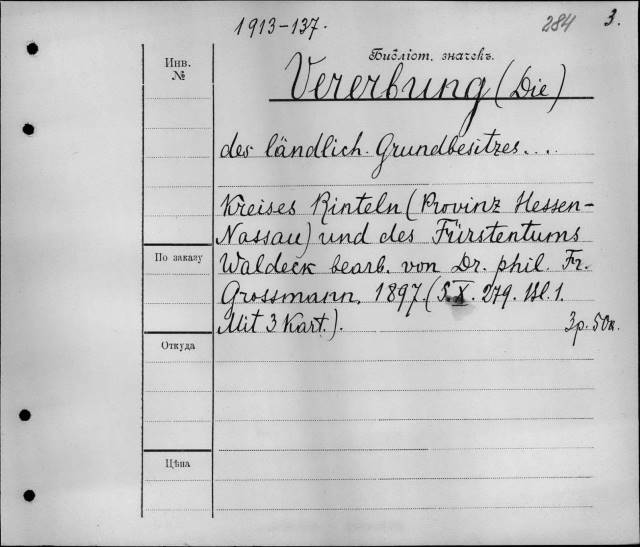 1913-137.
284 3.
Инв.
№
Библіот. значекъ.
Vererbung (Die)
des ländlich. Grundbesitzes...
Kreises Rinteln (Provinz Hessen-
Nassau) und des Fürstentums
По заказу
Waldeck bearb. von Dr. phil. Fr.
Grossmann. 1897. (S. X. 279. Bl. 1.
Mit 3 Kart.). 3р. 50к.
Откуда
Цѣна